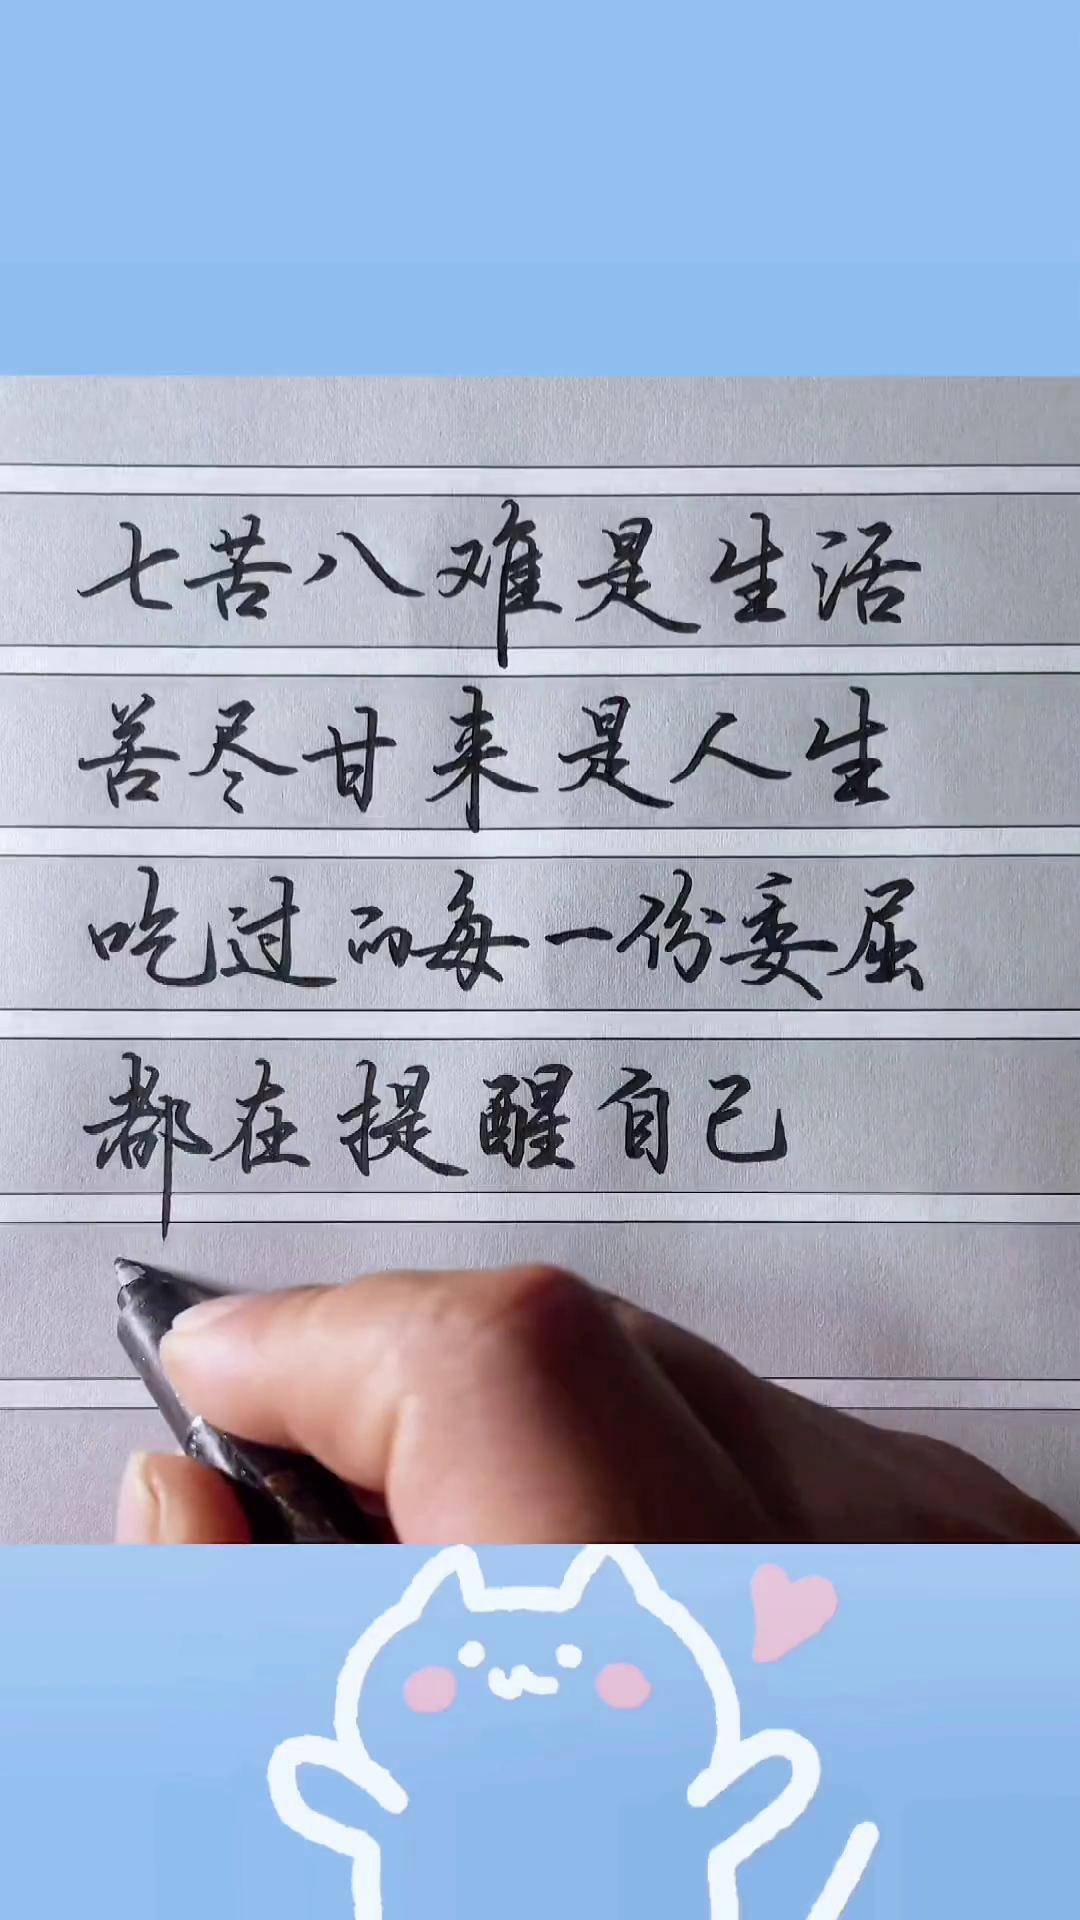 七苦八难是生活
苦尽甘来是人生
吃过的每一份委屈
都在提醒自己